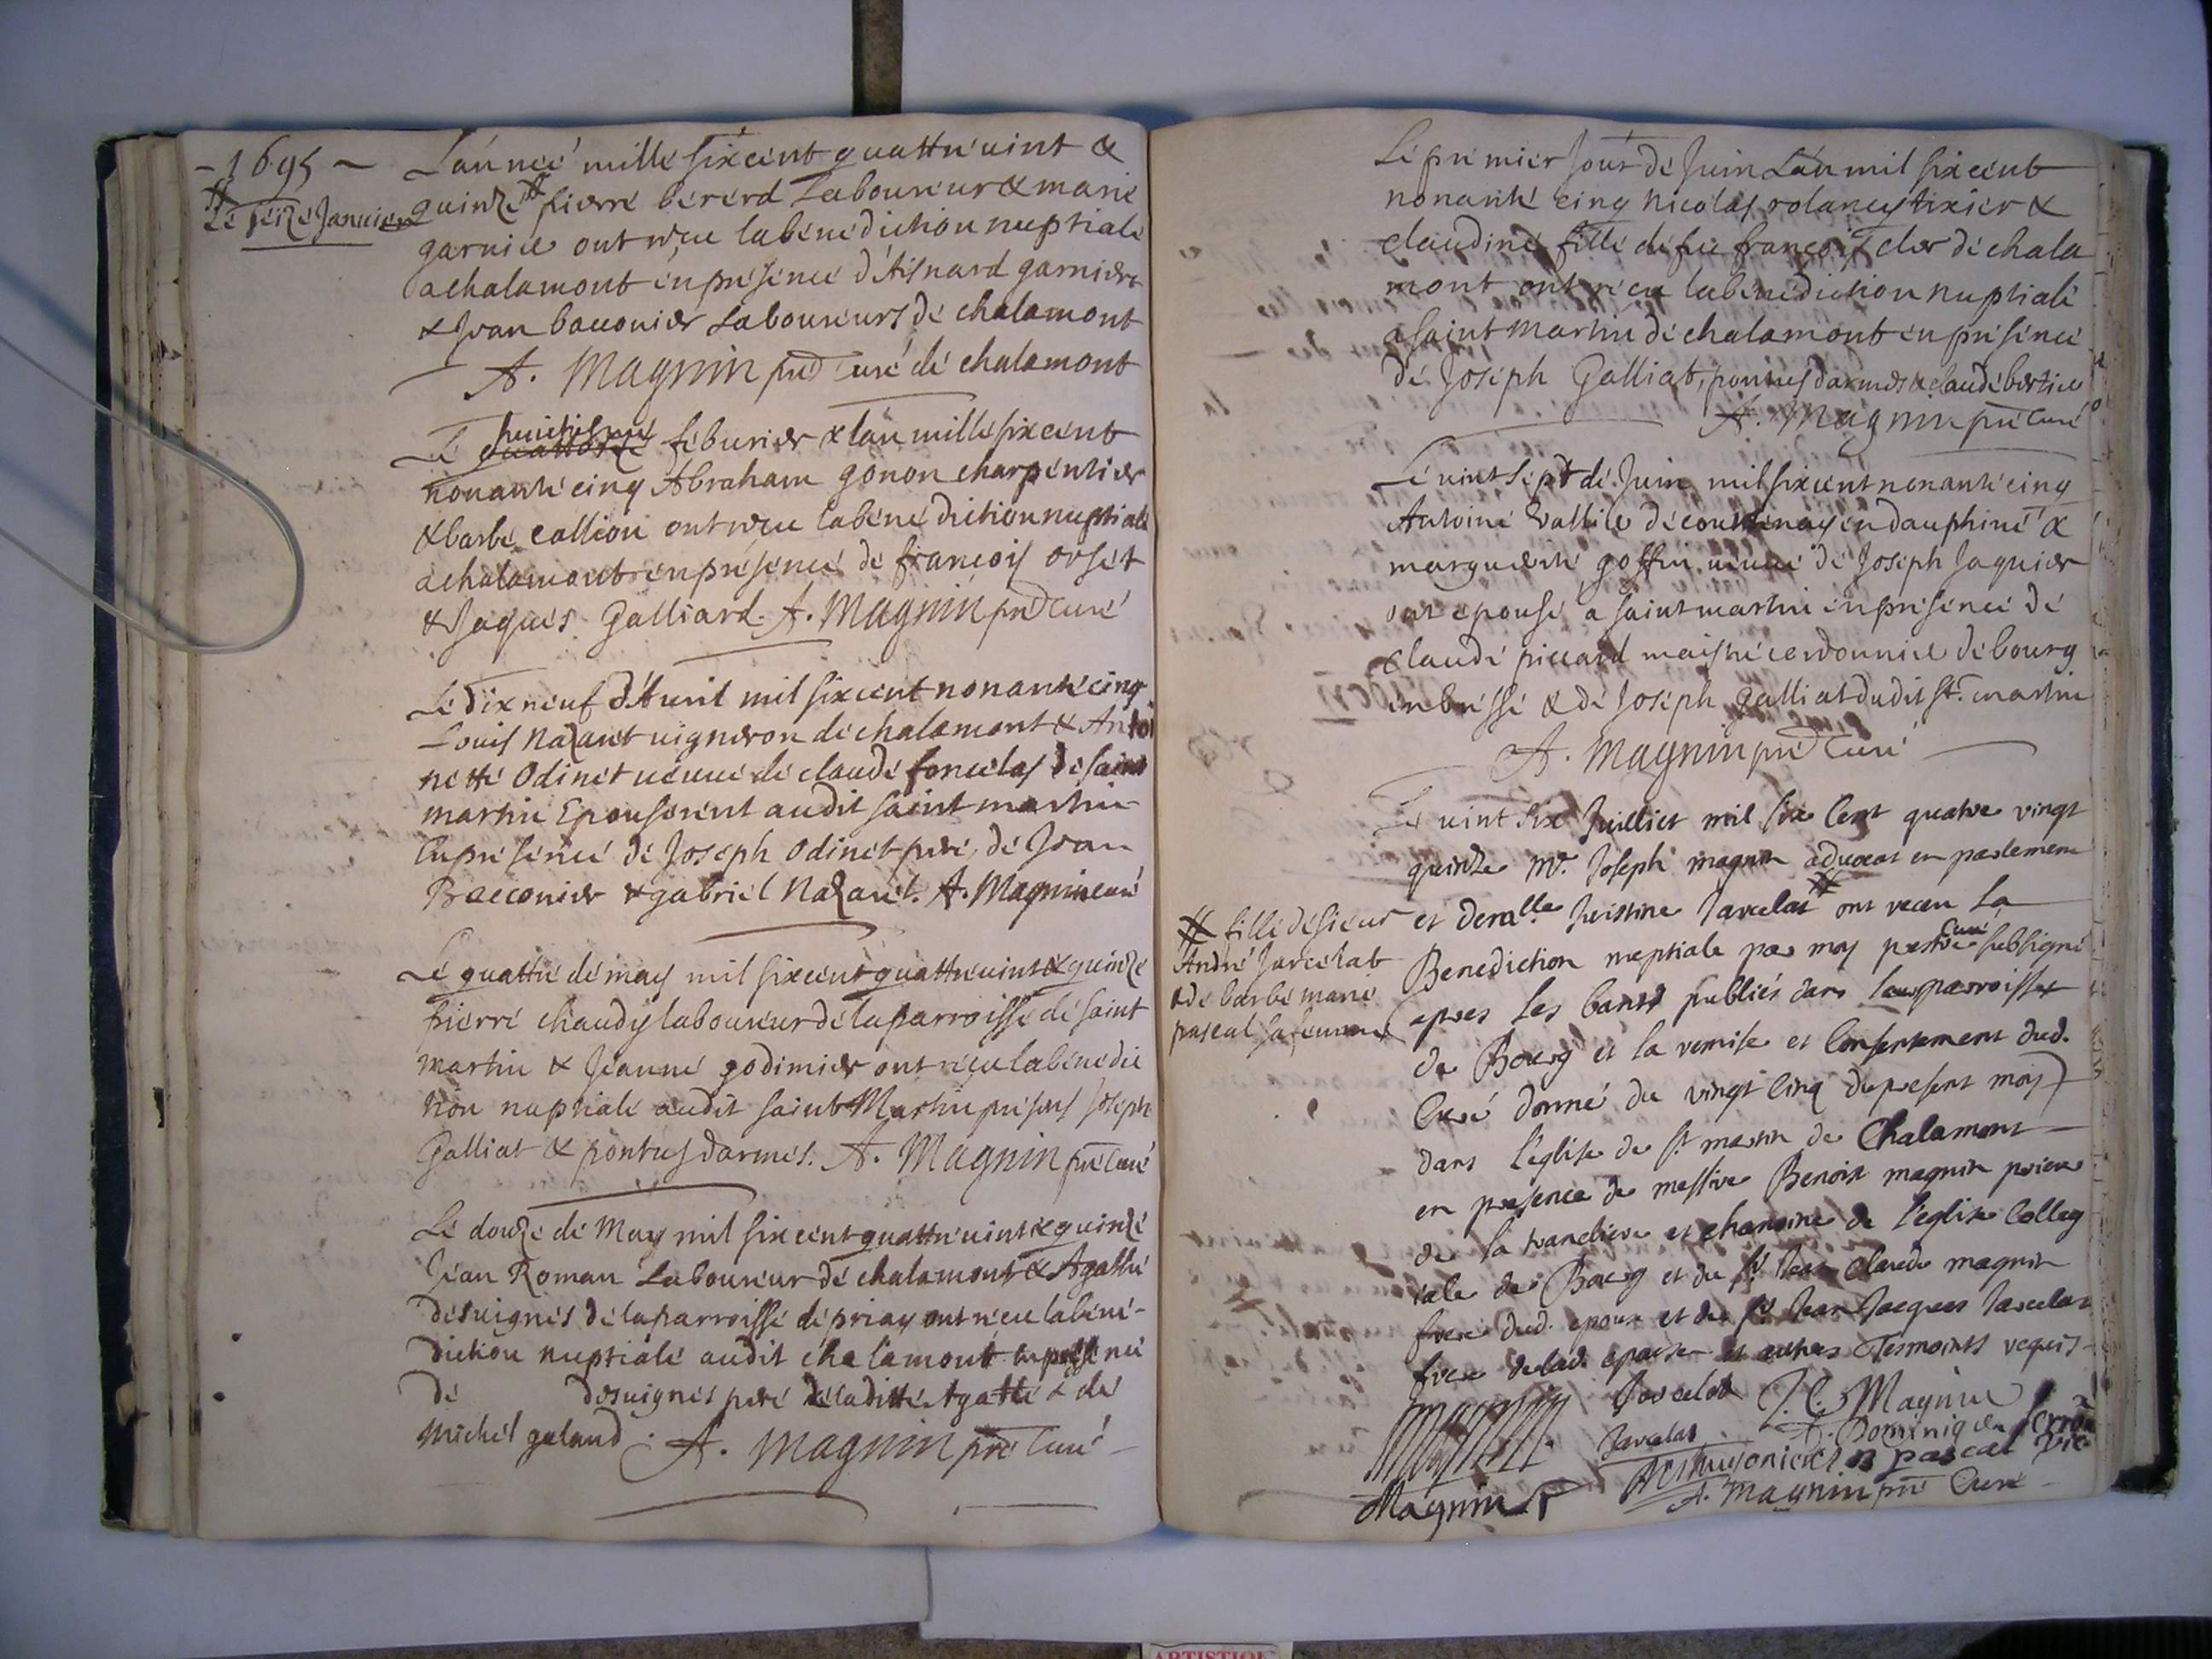 - 1695 -
# Le seize Januier
L'année mille sixcent quattre uint &
quinze # pierre bererd Laboureur & marie
garnier ont reçu la benediction nuptiale
a chalamont en présence d'Aisnard garnier
& Jean bacconier Laboureurs de chalamont
A. Magnin pré Curé de chalamont
Le huictiesme feburier & l'an mille sixcent
nonante cinq Abraham gonon charpentier
& barbe callion ont reçu la benediction nuptiale
a chalamont en présence de françois orset
& Jaques Galliard. A. Magnin pré Curé
Le dixneuf d'Auril mil sixcent nonante cinq
Louis Nazaret uigneron de chalamont & Antoi
nette Odinet ueuue de claude foncelas de saint
martin Epouserent audit saint martin
En présence de Joseph Odinet pere, de Jean
Bacconier & gabriel Nazaret. A. Magnin curé
Le quattre de may mil sixcent quattre uint & quinze
pierre chaudy laboureur de la parroisse de saint
martin & Jeanne godimier ont reçu la benedic
tion nuptiale audit saint Martin présens Joseph
Galliat & pontus darmes. A. Magnin pré Curé
Le douze de May mil sixcent quattre uint & quinze
Jean Roman Laboureur de chalamont & Agathe
desuignes de la parroisse de priay ont reçu la béné-
diction nuptiale audit chalamont en présence
de desuignes pere de laditte Agathe & de
Michel galand. A. Magnin pré Curé
Le premier jour de Juin L'an mil sixcent
nonante cinq Nicolas rolancy tixier &
claudine fille de feu françois cler de chala
mont ont reçu la benediction nuptiale
a saint Martin de chalamont en présence
de Joseph Galliat, pontus darmes & claude bertier
A. Magnin pré Curé
Le uint sept de Juin mil sixcent nonante cinq
Antoine Vallier de courtenay en dauphiné &
marguerite goffin ueuue de Joseph Jaquier
ont epousé a saint martin en présence de
claude piccard maistre cordonnier de bourg
en bresse & de Joseph galliat dudit st. martin
A. Magnin pré Curé
Le uint six Juilliet mil six Cent quatre vingt
quinze Mr. Joseph magnin aduocat en parlement
et demlle Juistine Jarcelat # ont receu La
# fille de sieur
André Jarcelat
& de barbe marie
pascal sa femme
Benediction nuptiale par moy prestre Curé subsigné
apres Les bants publiés dans leur parroisse
de Bourg et la remise et Consentement dud.
Curé donné du vingt Cinq du present moy
dans l'église de st martin de Chalamont
en presence de messire Benoist magnin prieur
de la tranclière et chanoine de l'eglise Colleg
iale de Bourg et du sr Jean Claude magnin
frere dud. epoux et du sr Jean Jacques Jarcelat
frere de lad. epouse et autres Tesmoints requis
Jarcelat J. C. Magnin
Jarcelat
pascal
Magnin
A. Magnin pré Curé